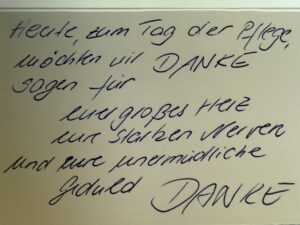 Heute, zum Tag der Pflege,
möchten wir DANKE
sagen für
euer großes Herz
eure starken Nerven
und eure unermüdliche
Geduld DANKE